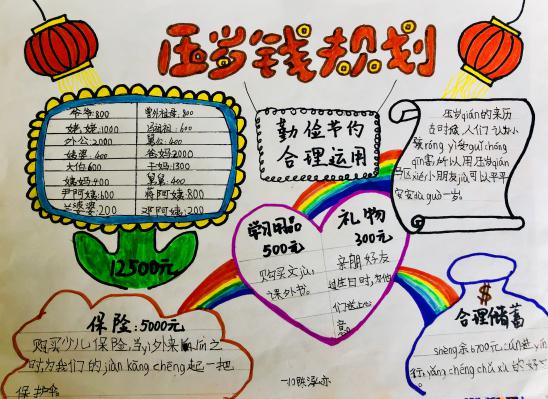 压岁钱规划
爷爷:800
姥姥:1000
外公:2000
姨婆:400
大伯:600
姨妈:400
尹阿姨:600
兰婆婆:200
曾外祖母:800
祖祖:600
舅公:400
爸妈2000
干妈:1300
舅舅:400
蒋阿姨:800
邓阿姨:200
12500元
勤俭节约
合理运用
压岁qián的来历
古时候,人们认为小
孩róng yì受guǐ
所以用压岁qián
小朋友jiù可以平平
安安dù guò一岁。
学习用品
500元
购买文jù,
课外书。
礼物
300元
亲朋好友
过生日时,为他
们送上心
意
保险:5000元
购买少儿保险,当yì外来lín之
时为我们的jiàn kāng chēng起一把
保护伞。
合理储蓄
shèng余6700元
行,yǎng chéng chǔ xù的好